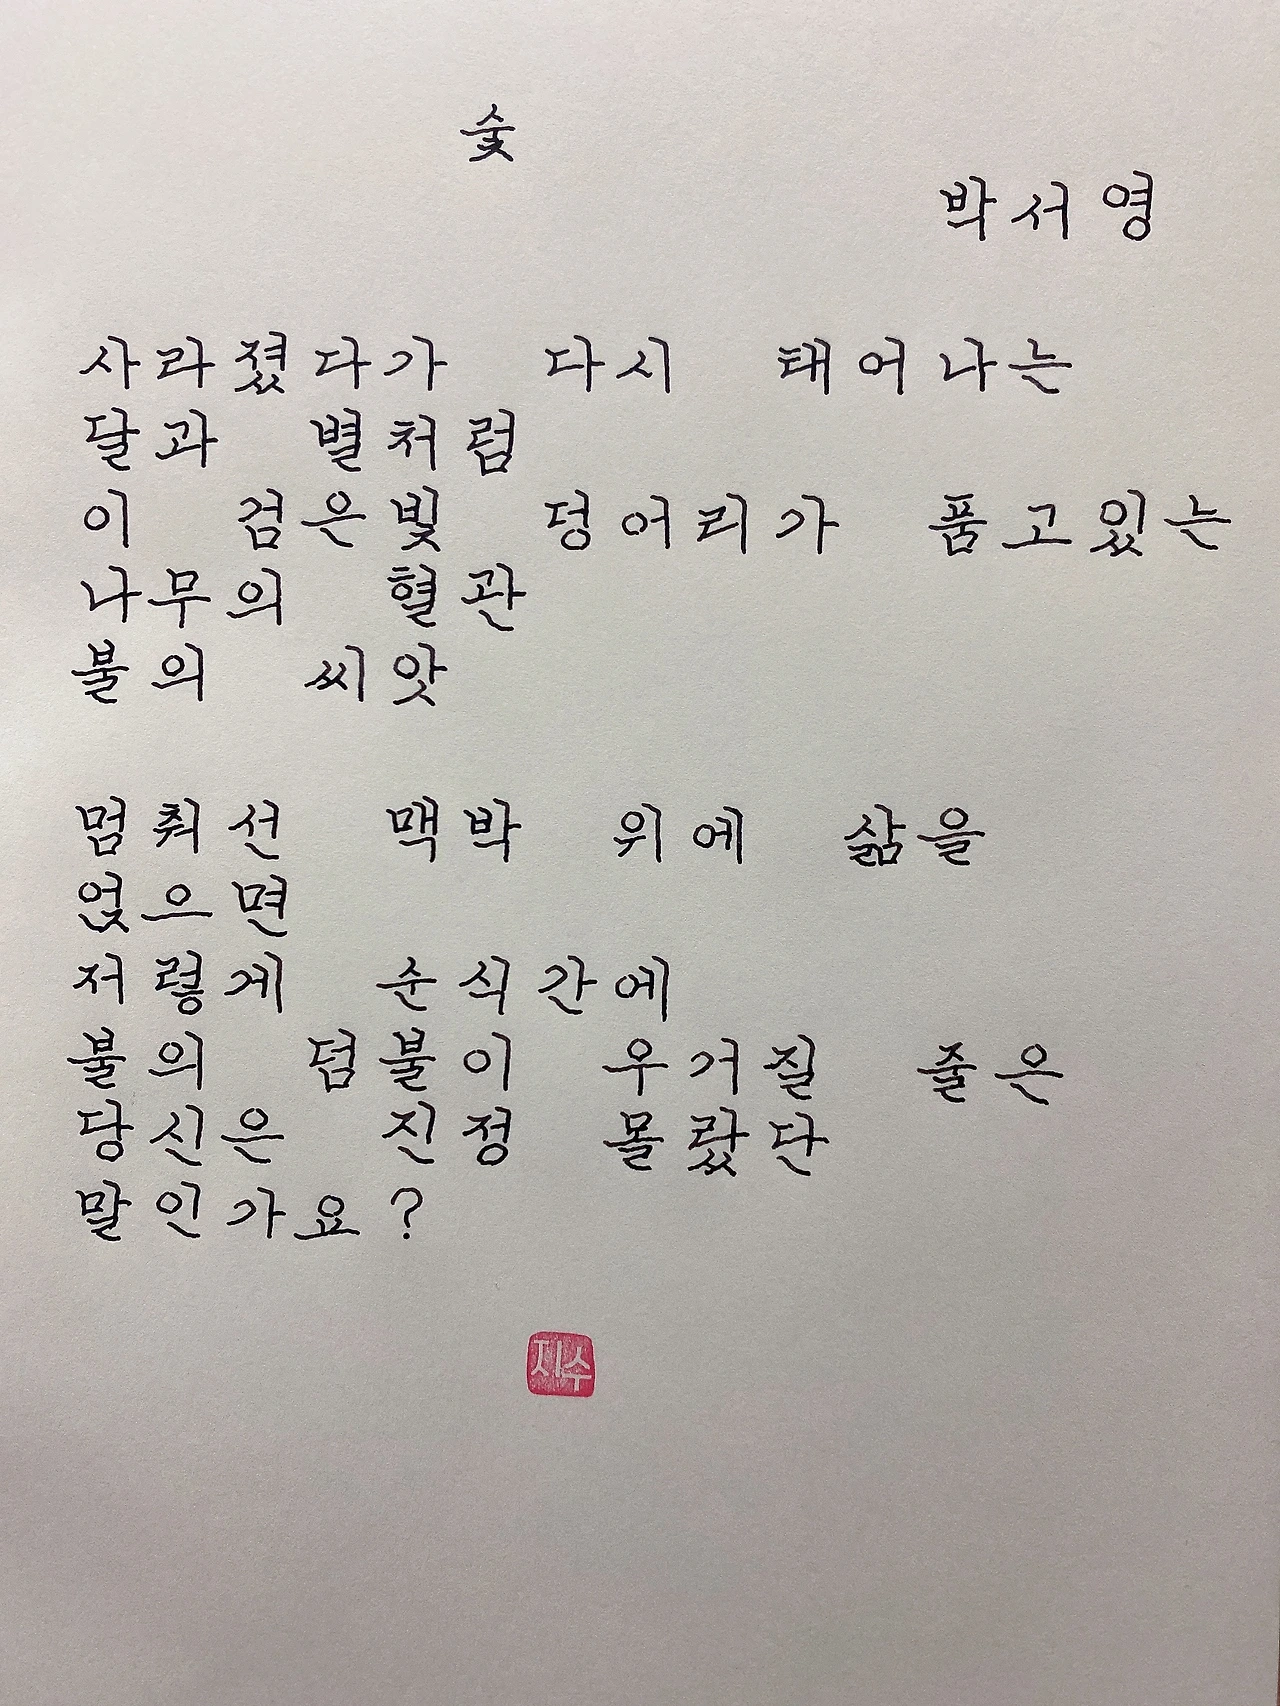 숯
박서영
사라졌다가 다시 태어나는
달과 별처럼
이 검은빛 덩어리가 품고있는
나무의 혈관
불의 씨앗
멈춰선 맥박 위에 삶을
얹으면
저렇게 순식간에
불의 덤불이 우거질 줄은
당신은 진정 몰랐단
말인가요?
지수